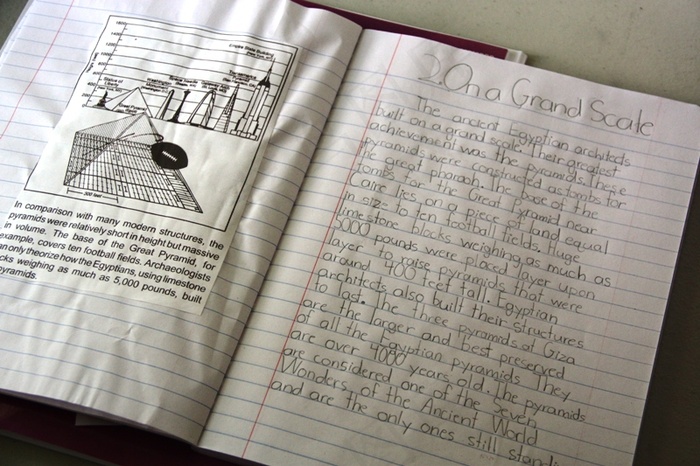 Empire State Building
Statue of
Washington
500 feet
In comparison with many modern structures, the
pyramids were relatively short in height but massive
in volume. The base of the Great Pyramid, for
example, covers ten football fields. Archaeologists
an only theorize how the Egyptians, using limestone
cks weighing as much as 5,000 pounds, built
pyramids.
2. On a Grand Scale
The ancient Egyptian architects
built on a grand scale. Their greatest
achievement was the pyramids. These
pyramids were constructed as tombs for
the great pharaoh. The base of the
tombs for the Great Pyramid near
Cairo lies on a piece of land equal
in size to ten football fields. Huge
limestone blocks weighing as much as
5000 pounds were placed layer upon
layer to raise pyramids that were
around 400 feet tall. Egyptian
architects also built their structures
to last. The three pyramids at Giza
are the larger and best preserved
of all the Egyptian pyramids They
are over 4000 years old. The pyramids
are considered one of the Seven
Wonders of the Ancient World
and are the only ones still standi